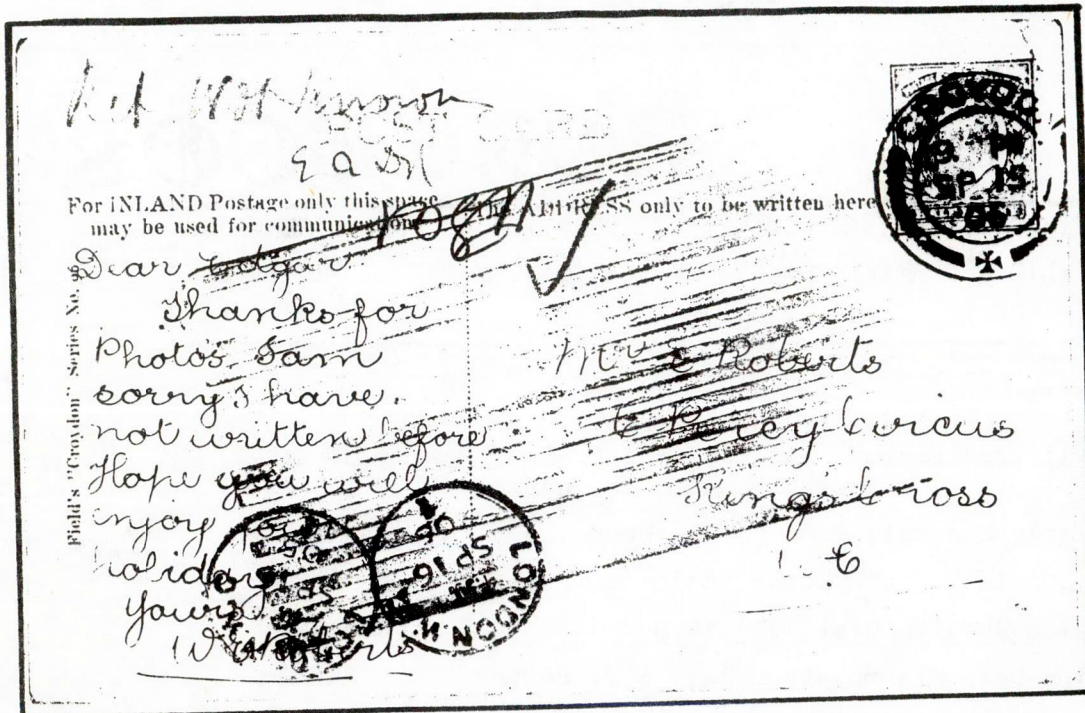 Not Known
For INLAND Postage only this space
may be used for communication.
The ADDRESS only to be written here
Field's "Croydon" Series No.
Dear Edgar
Thanks for
Photos, I am
sorry I have
not written before
Hope you will
enjoy your
holiday
Yours
Roberts
Mr E Roberts
6 Percy Circus
Kings Cross
CROYDON
9 PM
SP 15
05
LONDON.
SP 16
05